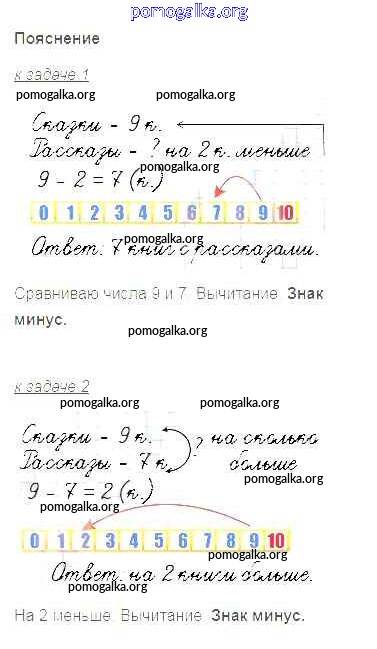 pomogalka.org
Пояснение
к задаче 1
pomogalka.org pomogalka.org
Сказки - 9 к.
Рассказы - ? на 2 к. меньше
pomogalka.org
9 - 2 = 7 (к.)
0 1 2 3 4 5 6 7 8 9 10
pomogalka.org
Ответ: 7 книг с рассказами.
Сравниваю числа 9 и 7. Вычитание. Знак
минус.
pomogalka.org
к задаче 2
pomogalka.org pomogalka.org
Сказки - 9 к. ? на сколько
Рассказы - 7 к. больше
pomogalka.org
9 - 7 = 2 (к.)
pomogalka.org
0 1 2 3 4 5 6 7 8 9 10
pomogalka.org
Ответ: на 2 книги больше.
pomogalka.org
На 2 меньше. Вычитание. Знак минус.
pomogalka.org